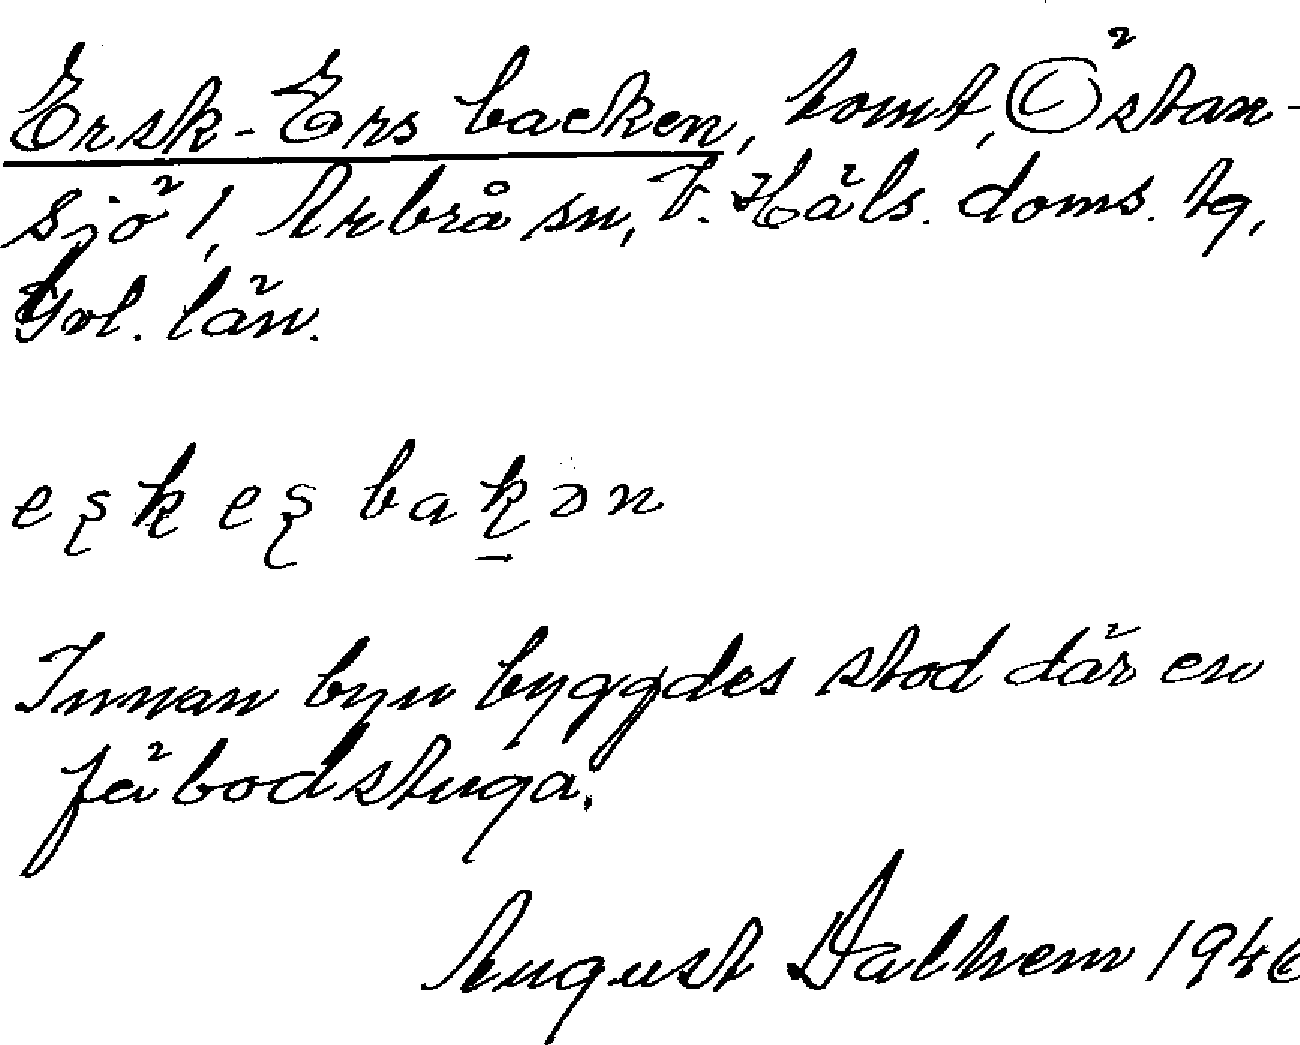 Ersk-Ers backen, tomt, Östan-
sjö 1, Arbrå sn, V. Häls. doms. tg,
Gvl. län.
eşk eş bak̠ən
Innan byn byggdes stod där en
fäbodstuga.
August Dalhem 1946